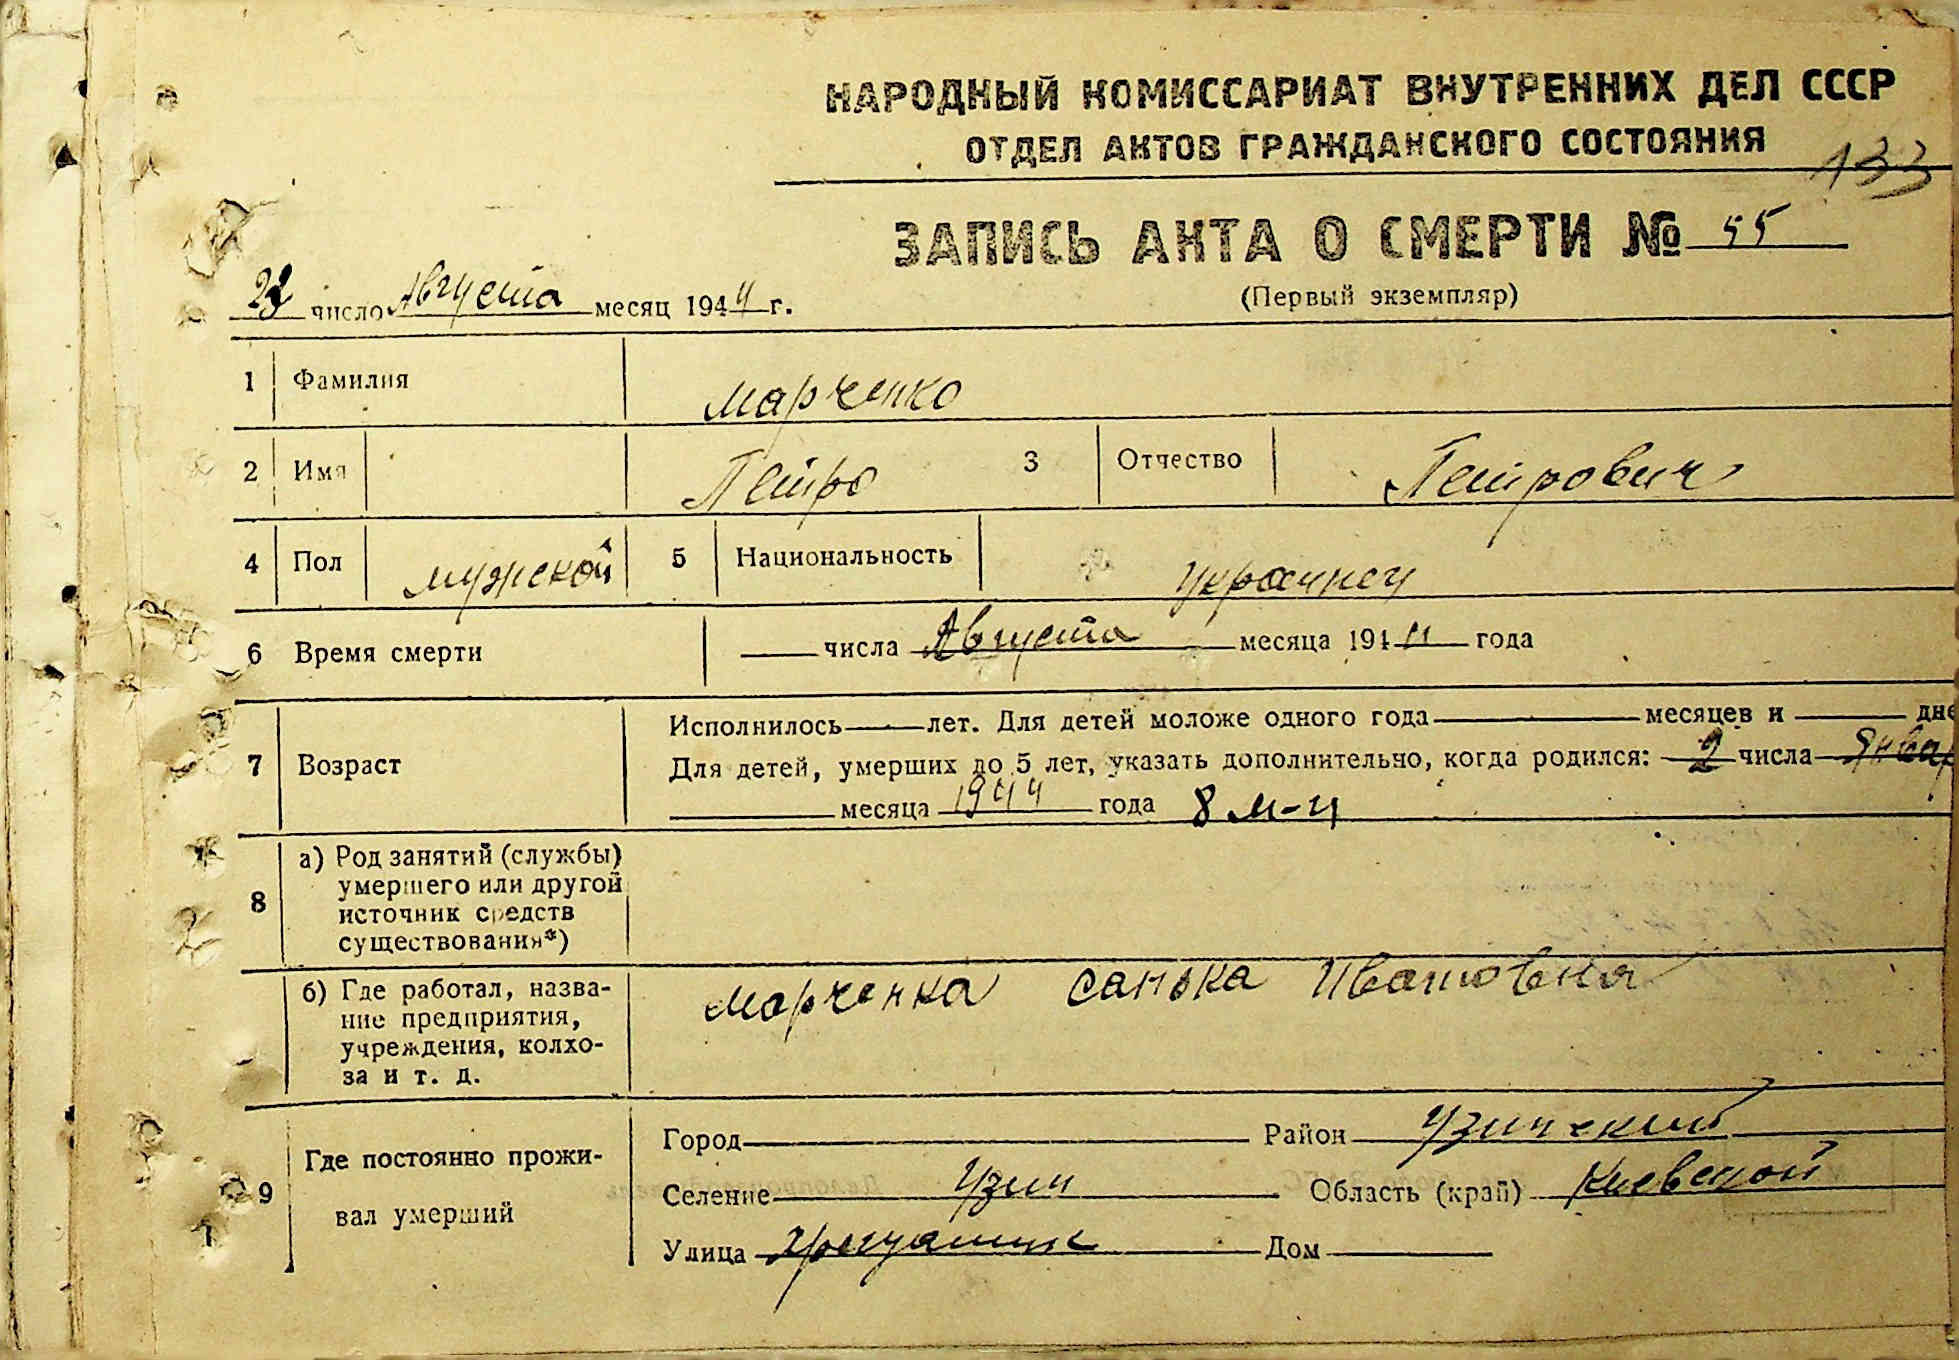 НАРОДНЫЙ КОМИССАРИАТ ВНУТРЕННИХ ДЕЛ СССР
ОТДЕЛ АКТОВ ГРАЖДАНСКОГО СОСТОЯНИЯ
133
ЗАПИСЬ АКТА О СМЕРТИ № 55
(Первый экземпляр)
число Августа месяц 1944 г.
1 Фамилия Марченко
2 Имя Петро 3 Отчество Петрович
4 Пол мужской 5 Национальность украинец
6 Время смерти числа Августа месяца 1944 года
Исполнилось лет. Для детей моложе одного года месяцев и дне
7 Возраст Для детей, умерших до 5 лет, указать дополнительно, когда родился: 2 числа Январ
месяца 1944 года 8 м-ц
8 а) Род занятий (службы)
умершего или другой
источник средств
существования*)
б) Где работал, назва- Марченка Санька Ивановна
ние предприятия,
учреждения, колхо-
за и т. д.
9 Где постоянно прожи-
вал умерший
Город Район Узинский
Селение Узин Область (край) Киевской
Улица Дом